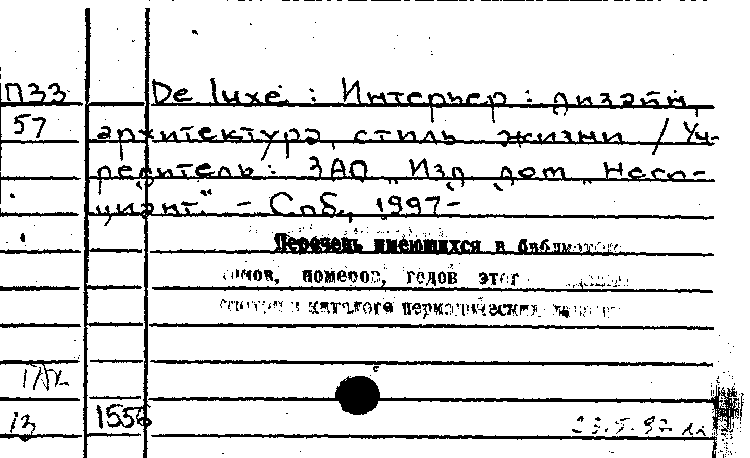 П33 De luxe : Интерьер : дизайн,
57 архитектура, стиль жизни / Уч-
редитель: ЗАО „Изд. дом „Него-
циант“ - Спб., 1997-
Перечень имеющихся в библиотеке
томов, номеров, годов этого издания
смотри в каталоге периодических изданий
13 1556 23.5.97